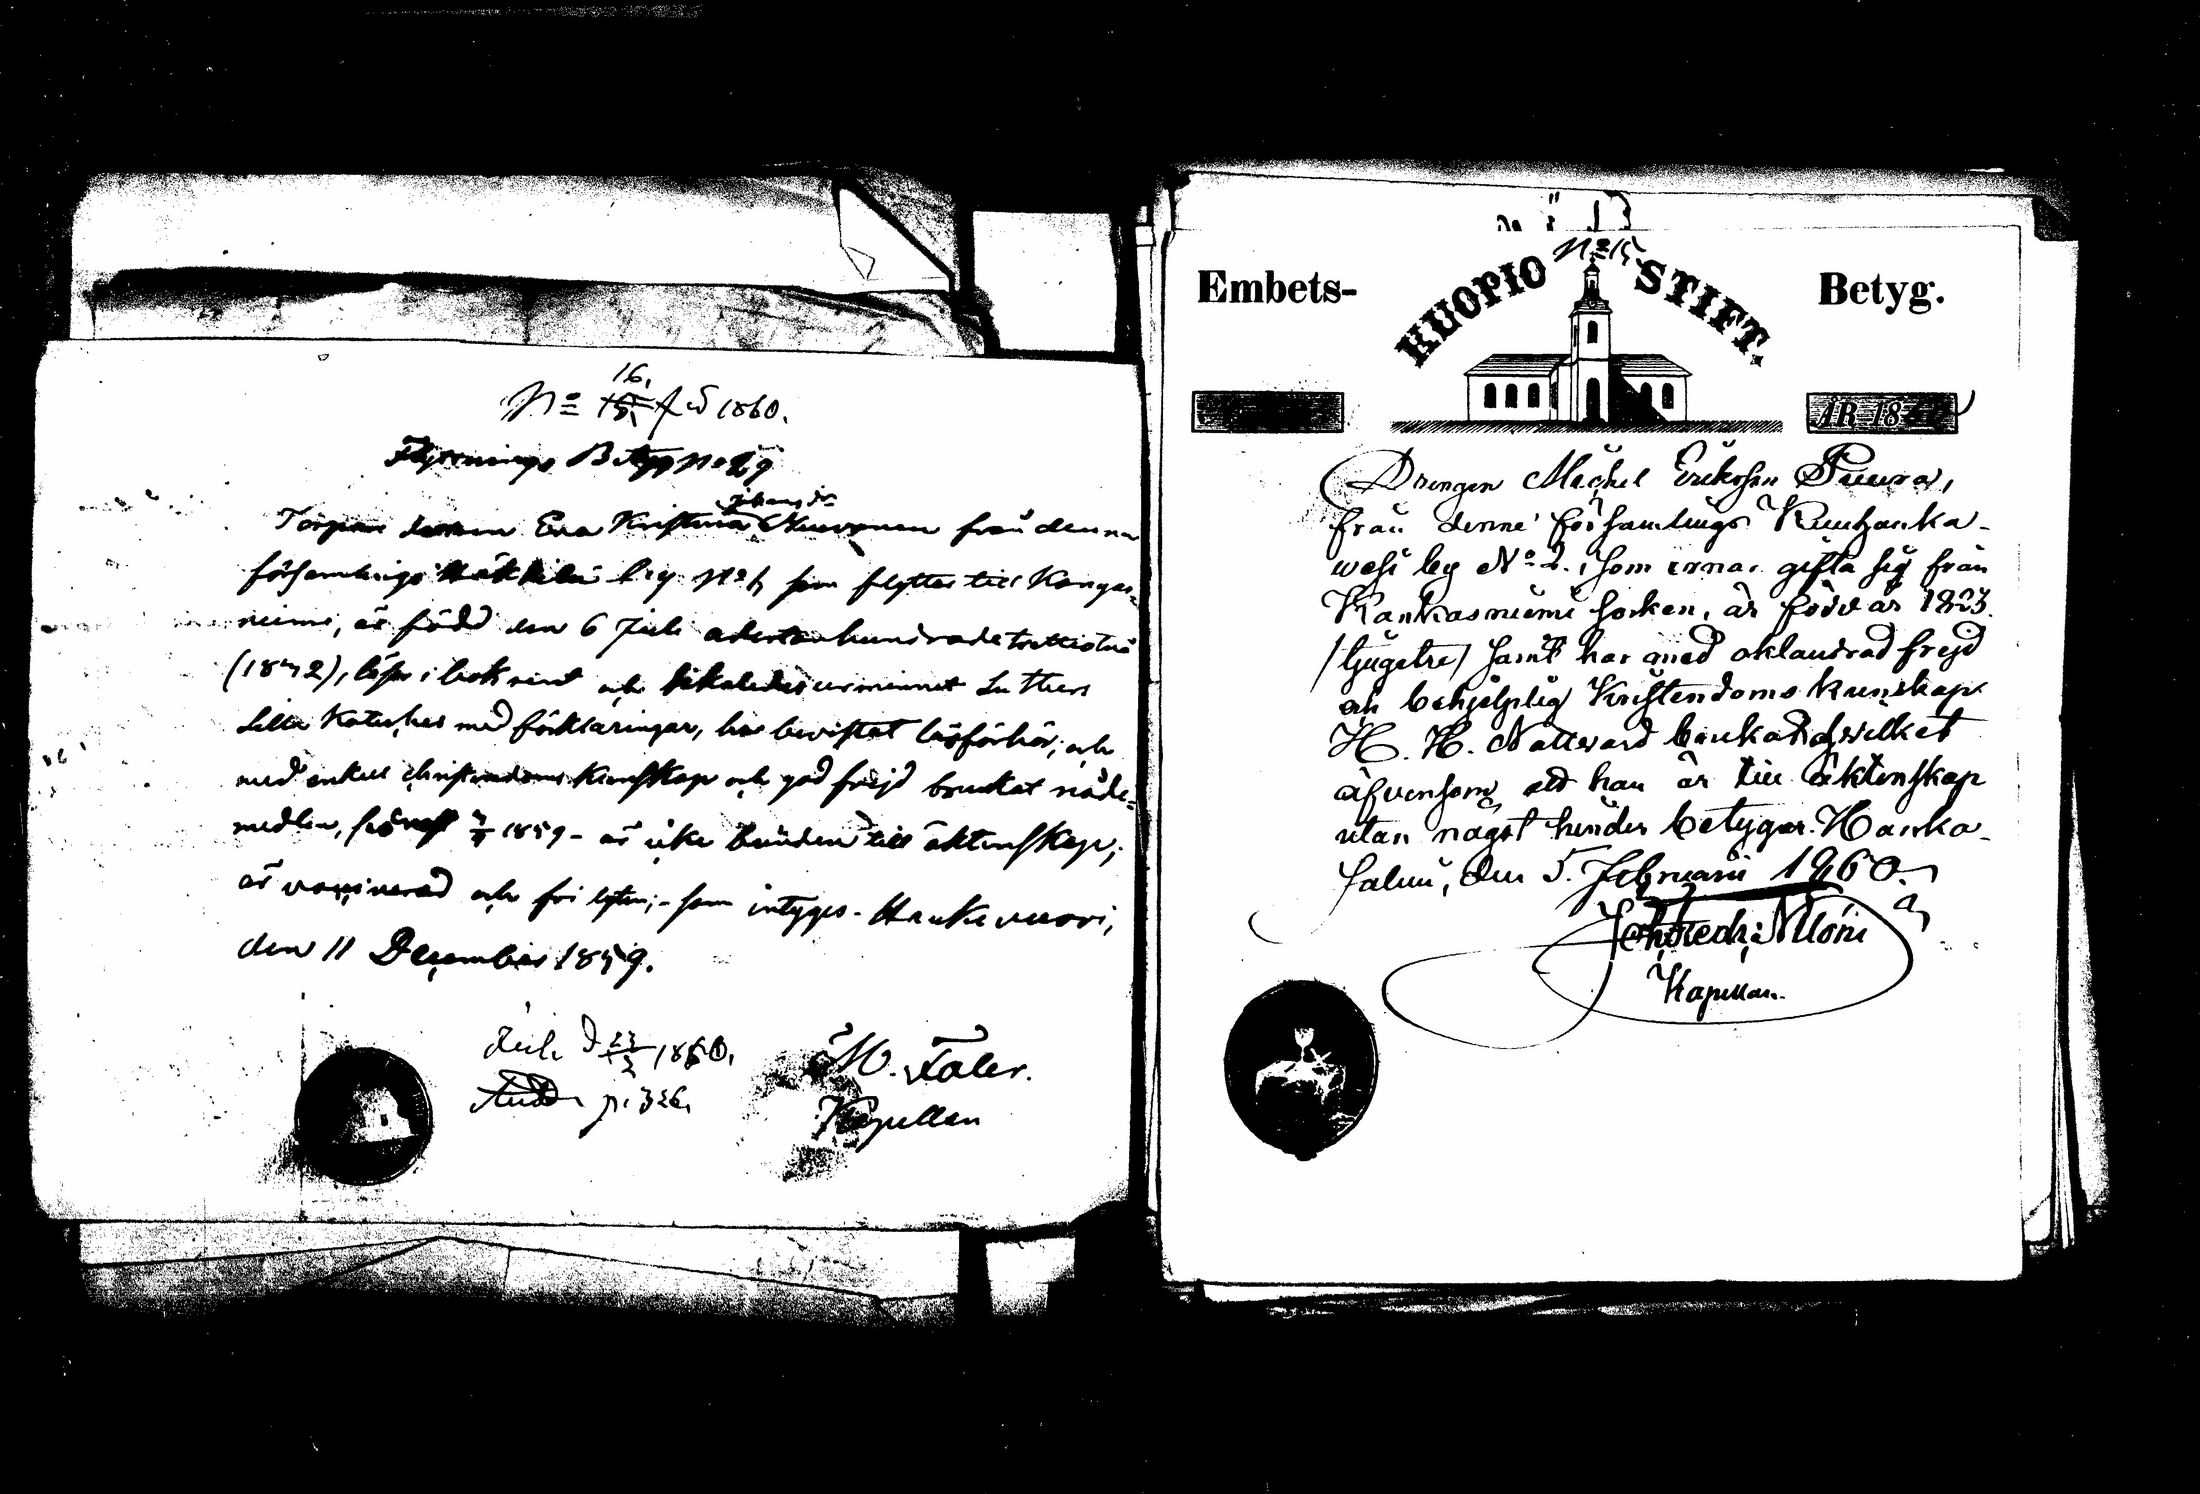 No 16. f. d. 1860.
Flyttnings Betyg No 29
Torpare dottern Eva Kristina Johansdr från denna
församlings by No 6, som flyttar till Kangas-
niemi, är född den 6 Juli adertonhundrade
(1842), läser i bok rent och likaledes ur minnet Luthers
Lilla Kateches med förklaringar, har bevistat läsförhör, och
med enkel christendoms kunskap och god frejd brukat nåde-
medlen, sednast 1859 - är icke bunden till äktenskap;
är vaccinerad och fri lyten; - som intygas. Haukivuori,
den 11 December 1859.
d 23/3 1860.
p. 326.
M. Faler.
Kapellan
No 15
Embets- KUOPIO STIFT. Betyg.
ÅR 1860
Drengen Michel Eriksson Puura,
från denne församlings Kuuhanka-
vesi by No 2, som ernar gifta sig från
Kankasniemi socken, är född år 1823
/tjugutre/ samt har med oklandrad frejd
och behjelplig Kristendoms kunskap
H. H. Nattvard brukat, hvilket
äfvensom att han är till äktenskap
utan något hinder betygar. Hanka-
salmi, den 5. Februarii 1860.
Kapellan.